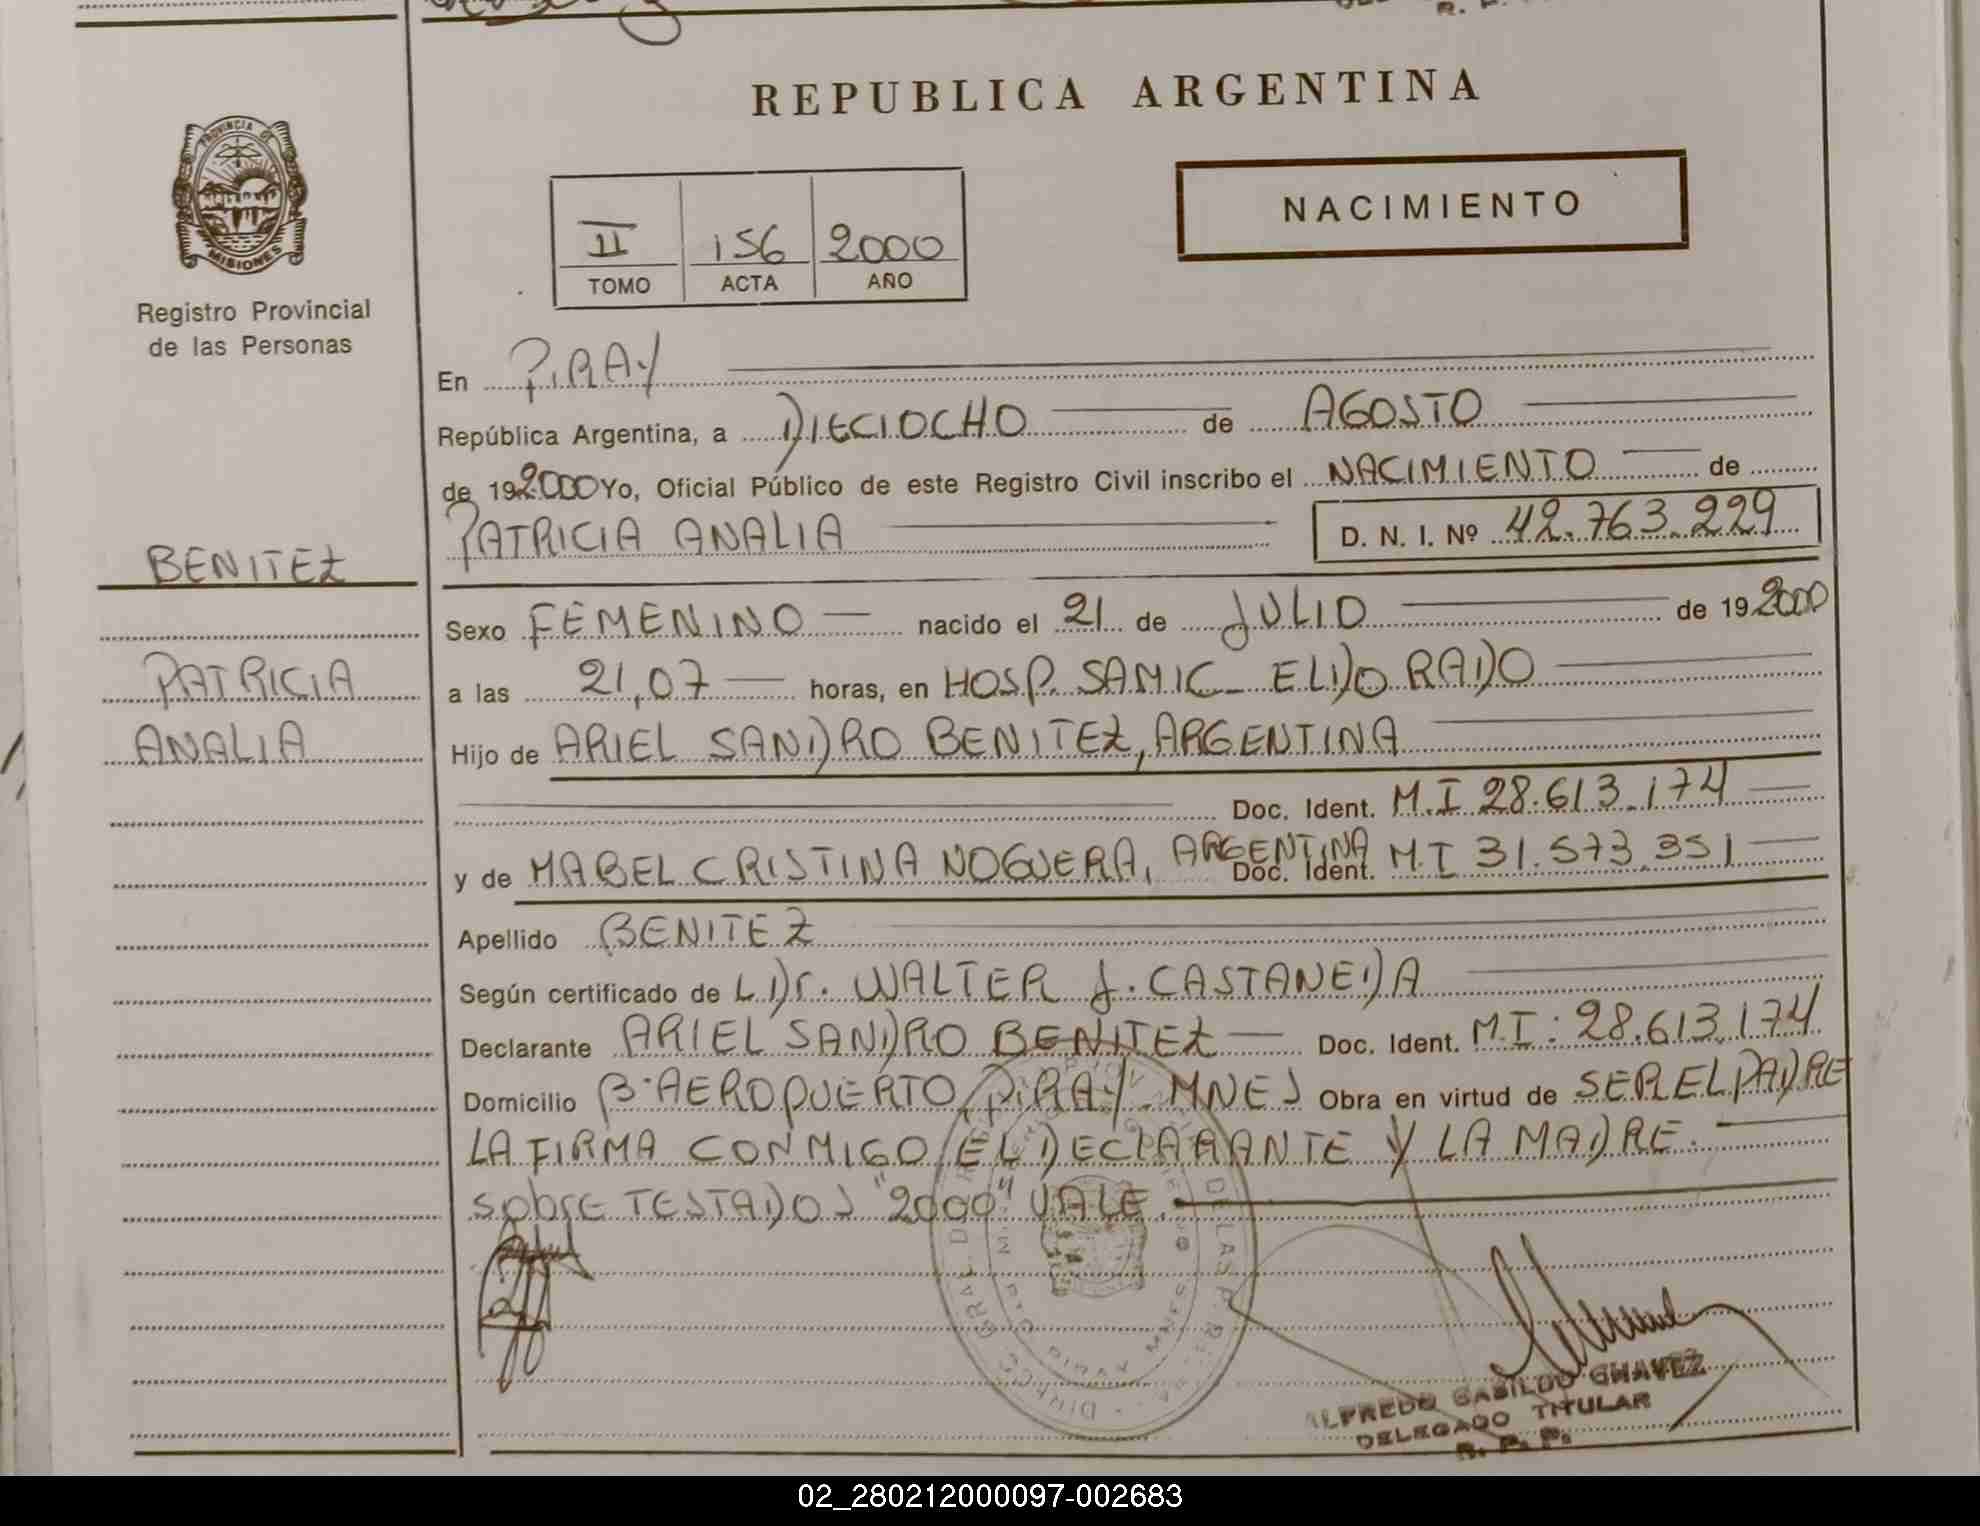 REPUBLICA ARGENTINA
PROVINCIA DE
MISIONES
Registro Provincial
de las Personas
II 156 2000
TOMO ACTA AÑO
NACIMIENTO
En PIRAY
República Argentina, a DIECIOCHO de AGOSTO
de 192000 Yo, Oficial Público de este Registro Civil inscribo el NACIMIENTO de
PATRICIA ANALIA D. N. I. Nº 42.763.229
BENITEZ
PATRICIA
ANALIA
Sexo FEMENINO nacido el 21 de JULIO de 192000
a las 21,07 horas, en HOSP. SAMIC - ELDORADO
Hijo de ARIEL SANDRO BENITEZ, ARGENTINA
Doc. Ident. M.I 28.613.174
y de MABEL CRISTINA NOGUERA, ARGENTINA Doc. Ident. M.I 31.573.351
Apellido BENITEZ
Según certificado de L Dr. WALTER J. CASTANEDA
Declarante ARIEL SANDRO BENITEZ Doc. Ident. M.I: 28.613.174
Domicilio Bº AEROPUERTO, PIRAY - MNES Obra en virtud de SER EL PADRE
LA FIRMA CONMIGO EL DECLARANTE Y LA MADRE.
SobrE TESTADOS "2000" VALE.
ALFREDO GABILDO CHAVEZ
DELEGADO TITULAR
R. P. P.
02_280212000097-002683